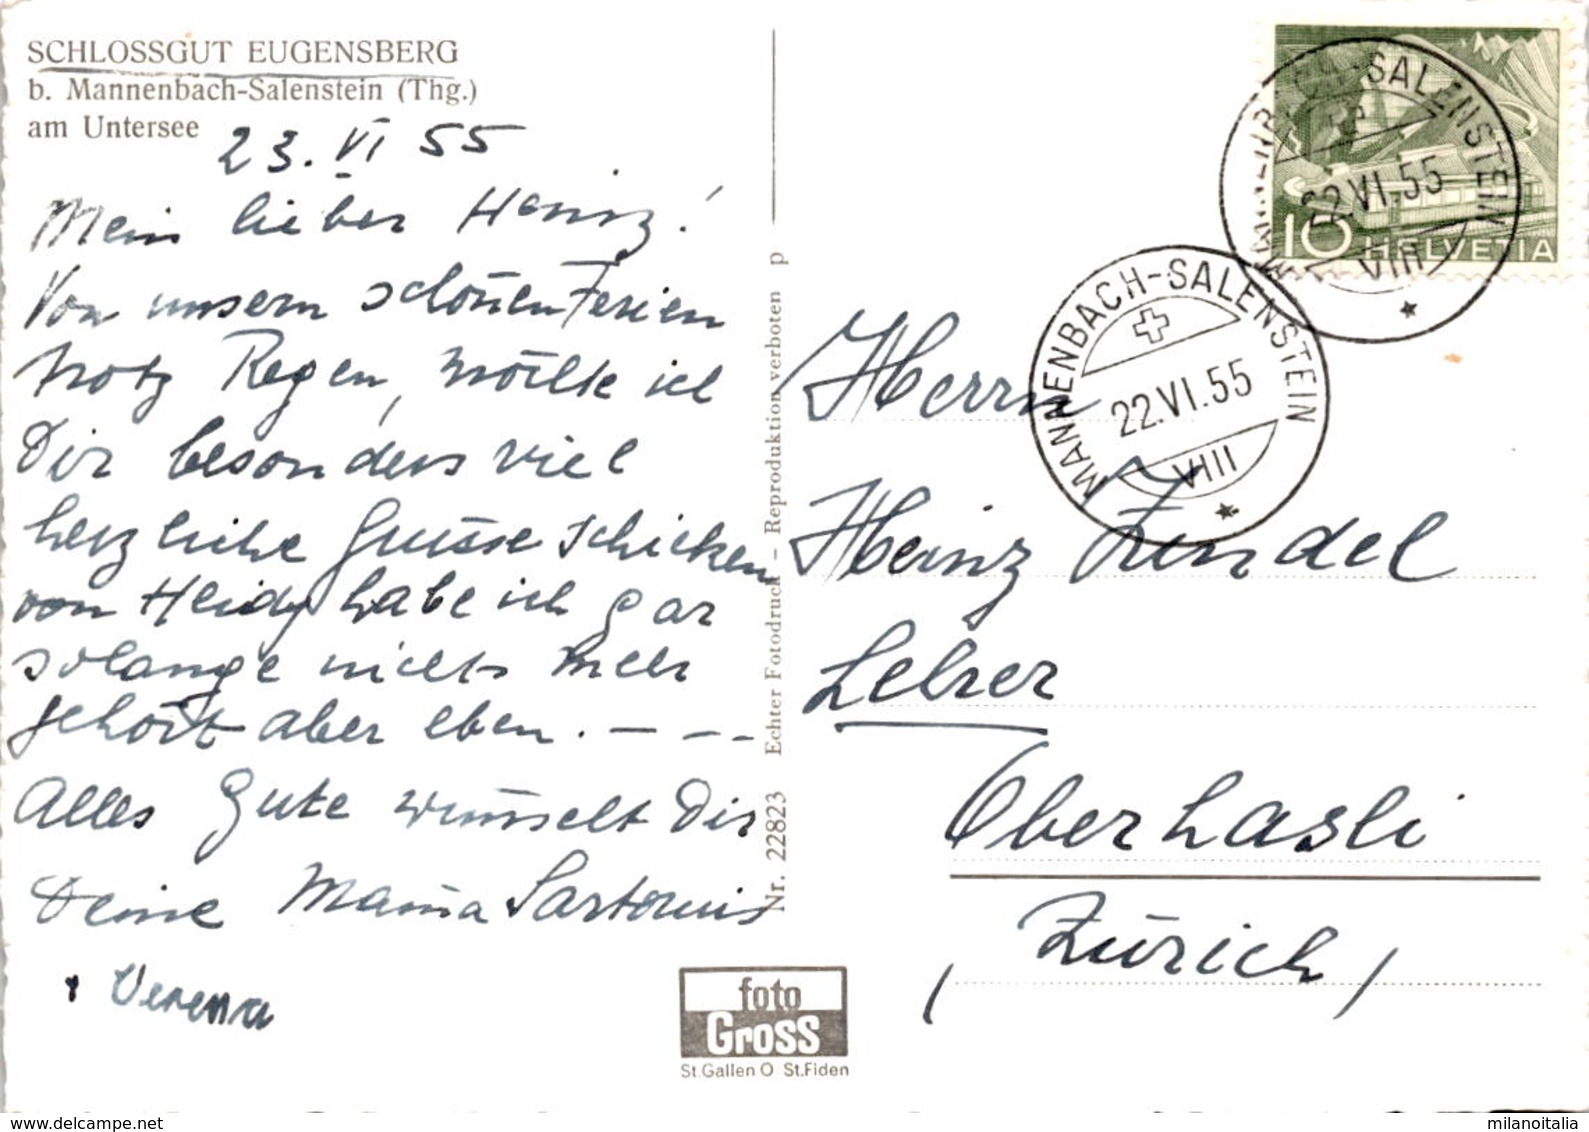 SCHLOSSGUT EUGENSBERG
b. Mannenbach-Salenstein (Thg.)
am Untersee
23. VI 55
Mein lieber Heinz!
Von unsern schönen Ferien
trotz Regen, möchte ich
Dir besonders viel
herzliche Grüsse schicken
von Heidy habe ich gar
solange nichts mehr
gehört aber eben. — – –
Alles Gute wünscht Dir
Deine Mama
Verena
Nr. 22823 Echter Fotodruck – Reproduktion verboten p
foto
Gross
St.Gallen O St.Fiden
MANNENBACH-SALENSTEIN
22.VI.55
VIII
10 HELVETIA
MANNENBACH-SALENSTEIN
22.VI.55
VIII
Herrn
Heinz Zindel
Lehrer
Oberhasli
(Zürich)
www.delcampe.net
milanoitalia